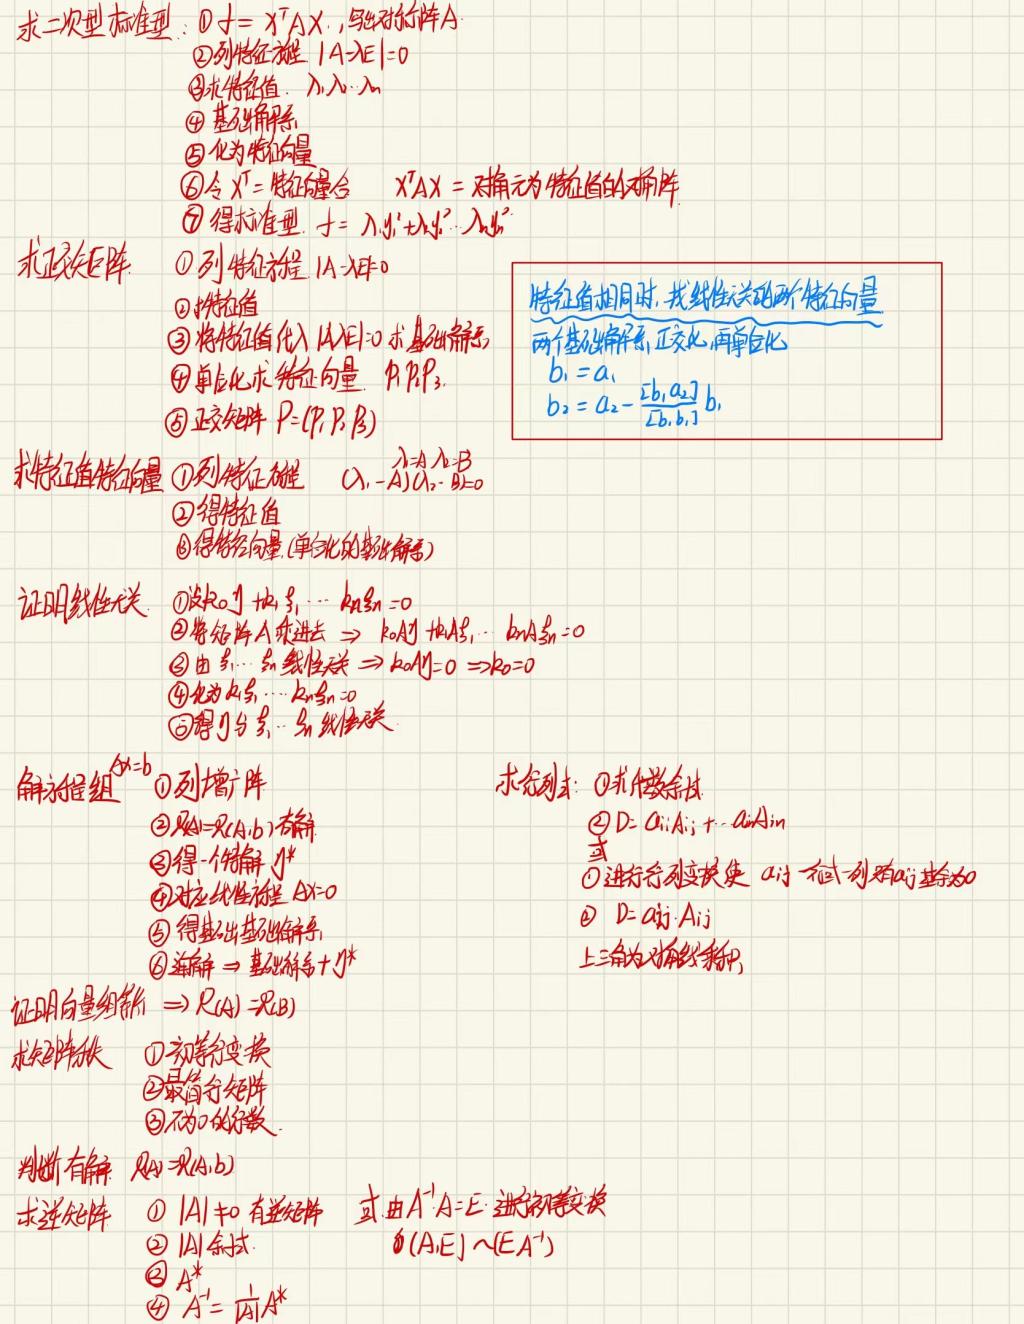 求二次型标准型: ① f = XᵀAX, 写出对称阵A
②列特征方程 |A-λE|=0
③求特征值 λ₁λ₂…λn
④ 基础解系
⑤ 化为特征向量
⑥令 Xᵀ= 特征向量合 XᵀAX = 对角元为特征值的对角阵
⑦ 得标准型 f = λ₁y₁²+λ₂y₂²…λnyn²
求正交矩阵 ① 列特征方程 |A-λE|=0
②求特征值
③ 将特征值代入 |A-λE|=0 求基础解系
④ 单位化求特征向量 P₁P₂P₃
⑤ 正交矩阵 P=(P₁P₂P₃)
特征值相同时,找线性无关的两个特征向量
两个基础解系,正交化,再单位化
b₁ = a₁
b₂ = a₂ - [b₁a₂]/[b₁b₁] b₁
求特征值特征向量 ①列特征方程 (λ₁-A)(λ₂-B)=0
λ₁=A λ₂=B
②得特征值
③得特征向量(单位化的基础解系)
证明线性无关 ①设k₀η+k₁ξ₁…knξn=0
②将矩阵A乘进去 ⇒ k₀Aη+k₁Aξ₁…knAξn=0
③由ξ₁…ξn线性无关 ⇒ k₀Aη=0 ⇒k₀=0
④化为k₁ξ₁…knξn=0
⑤得η与ξ₁…ξn线性无关
解方程组 Ax=b ①列增广阵
②R(A)=R(A,b)有解
③得一个特解η*
④对应线性方程 Ax=0
⑤ 得基础基础解系
⑥通解 ⇒ 基础解系+η*
求行列式: ①求代数余子式
② D= aᵢ₁Aᵢⱼ+…aᵢnAᵢn
或
①进行行列变换使 aij 一行或一列有aij其余为0
② D=aij·Aij
上三角为对角线乘积
证明向量组等价 ⇒ R(A)=R(B)
求矩阵秩 ①初等行变换
②最简行矩阵
③不为0的行数.
判断有解 R(A)=R(A,b)
求逆矩阵 ① |A|≠0 有逆矩阵 或由A⁻¹A=E 进行初等变换
② |A|余子式 (A,E)~(E A⁻¹)
③ A*
④ A⁻¹ = 1/|A| A*